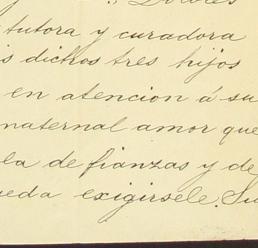 Dolores
tutora y curadora
s dichos tres hijos
en atencion á su
maternal amor que
la de fianzas y de
ueda exigirsele. Su